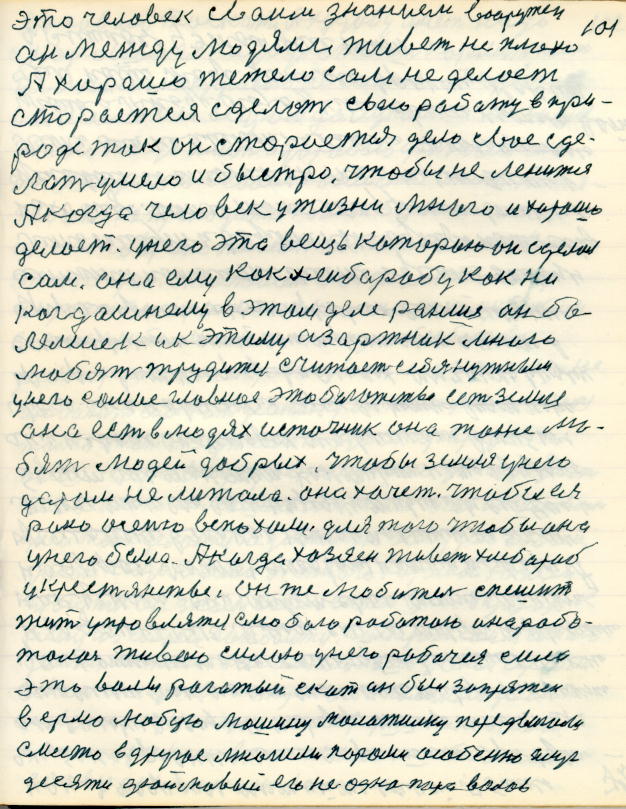 101
это человек сваим знанием вооружен
он между людями, живет не плохо
А хорашо тежело сам не делоет
сторается сделат сваюработу в при-
роде так он сторается дело свое сде-
лат умело и быстро, чтобы не ленится
А когда человек у жизни много и хорашо
делоет. унего эта вещь которою он сделал
сам. она ему как хлибаробу как ни
когдашнему в этом деле раньше он бы-
и к этому азартник много
любят трудится считает себя нужным
унего самое главное это багатства ест земля
она ест в людях источник она тоже лю-
бят людей добрых, чтобы земля унего
даром не литала. она хочет. чтобы ея
рано осенью вспохали. для того чтобы она
унего была. А когда хазяен живет хлебароб
у крестянстве, он же любител спешит
жит управлятся с любою работою она рабо-
талас живою силою унего рабочея сила
это валы рагатый скот он был запряжен
в ермо любую машину малатилку передвигали
с место в другое многими парами особенно плуг
десяти дюймовый его не одна пара валов